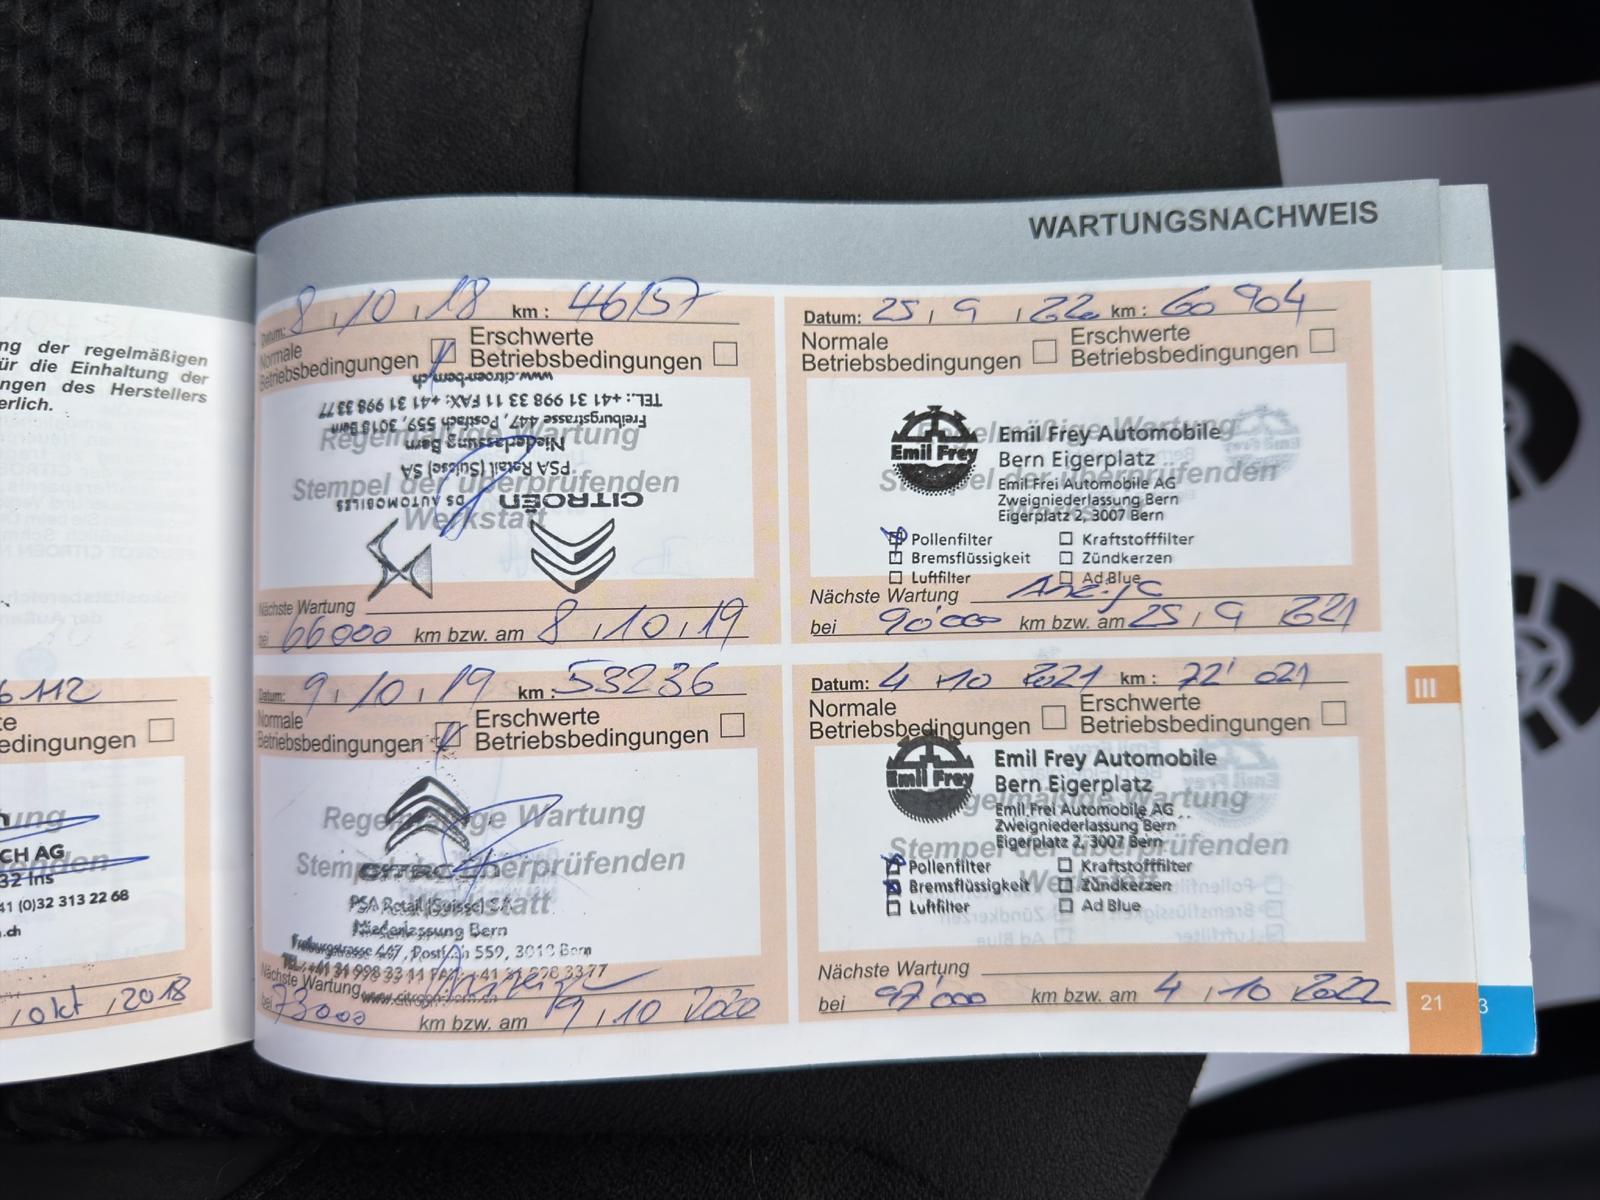 WARTUNGSNACHWEIS
ng der regelmäßigen
ür die Einhaltung der
ngen des Herstellers
erlich.
6112
te
edingungen
CH AG
32 Ins
41 (0)32 313 22 68
.ch
, okt , 2018
Datum: 8 , 10 , 18 km : 46157
Normale Betriebsbedingungen
Erschwerte Betriebsbedingungen
www.citroen-bern.ch
TEL.: +41 31 998 33 11 FAX: +41 31 998 33 77
Freiburgstrasse 447, Postfach 559, 3018 Bern
Niederlassung Bern
PSA Retail (Suisse) SA
CITROËN DS AUTOMOBILES
Regelmäßige Wartung
Stempel der überprüfenden
Werkstatt
Nächste Wartung
bei 66000 km bzw. am 8 , 10 , 19
Datum: 9 , 10 , 19 km : 53236
Normale Betriebsbedingungen
Erschwerte Betriebsbedingungen
Regelmäßige Wartung
Stempel der überprüfenden
Werkstatt
CITROËN
PSA Retail (Suisse) SA
Niederlassung Bern
Freiburgstrasse 447, Postfach 559, 3018 Bern
TEL.: +41 31 998 33 11 FAX: +41 31 998 33 77
Nächste Wartung
bei 73000 km bzw. am 9 , 10 2020
Datum: 25 , 9 , km : 60 904
Normale Betriebsbedingungen
Erschwerte Betriebsbedingungen
Regelmäßige Wartung
Stempel der überprüfenden
Werkstatt
Emil Frey
Emil Frey Automobile
Bern Eigerplatz
Emil Frei Automobile AG
Zweigniederlassung Bern
Eigerplatz 2, 3007 Bern
Pollenfilter Kraftstofffilter
Bremsflüssigkeit Zündkerzen
Luftfilter Ad Blue
Nächste Wartung Anzeige
bei 90'000 km bzw. am 25 , 9 2021
Datum: 4 10 2021 km : 72' 021
Normale Betriebsbedingungen
Erschwerte Betriebsbedingungen
Emil Frey
Emil Frey Automobile
Bern Eigerplatz
Regelmäßige Wartung
Emil Frei Automobile AG
Zweigniederlassung Bern
Eigerplatz 2, 3007 Bern
Stempel der überprüfenden
Werkstatt
Pollenfilter Kraftstofffilter
Bremsflüssigkeit Zündkerzen
Luftfilter Ad Blue
Nächste Wartung
bei 97'000 km bzw. am 4 , 10 2022
III
21
3